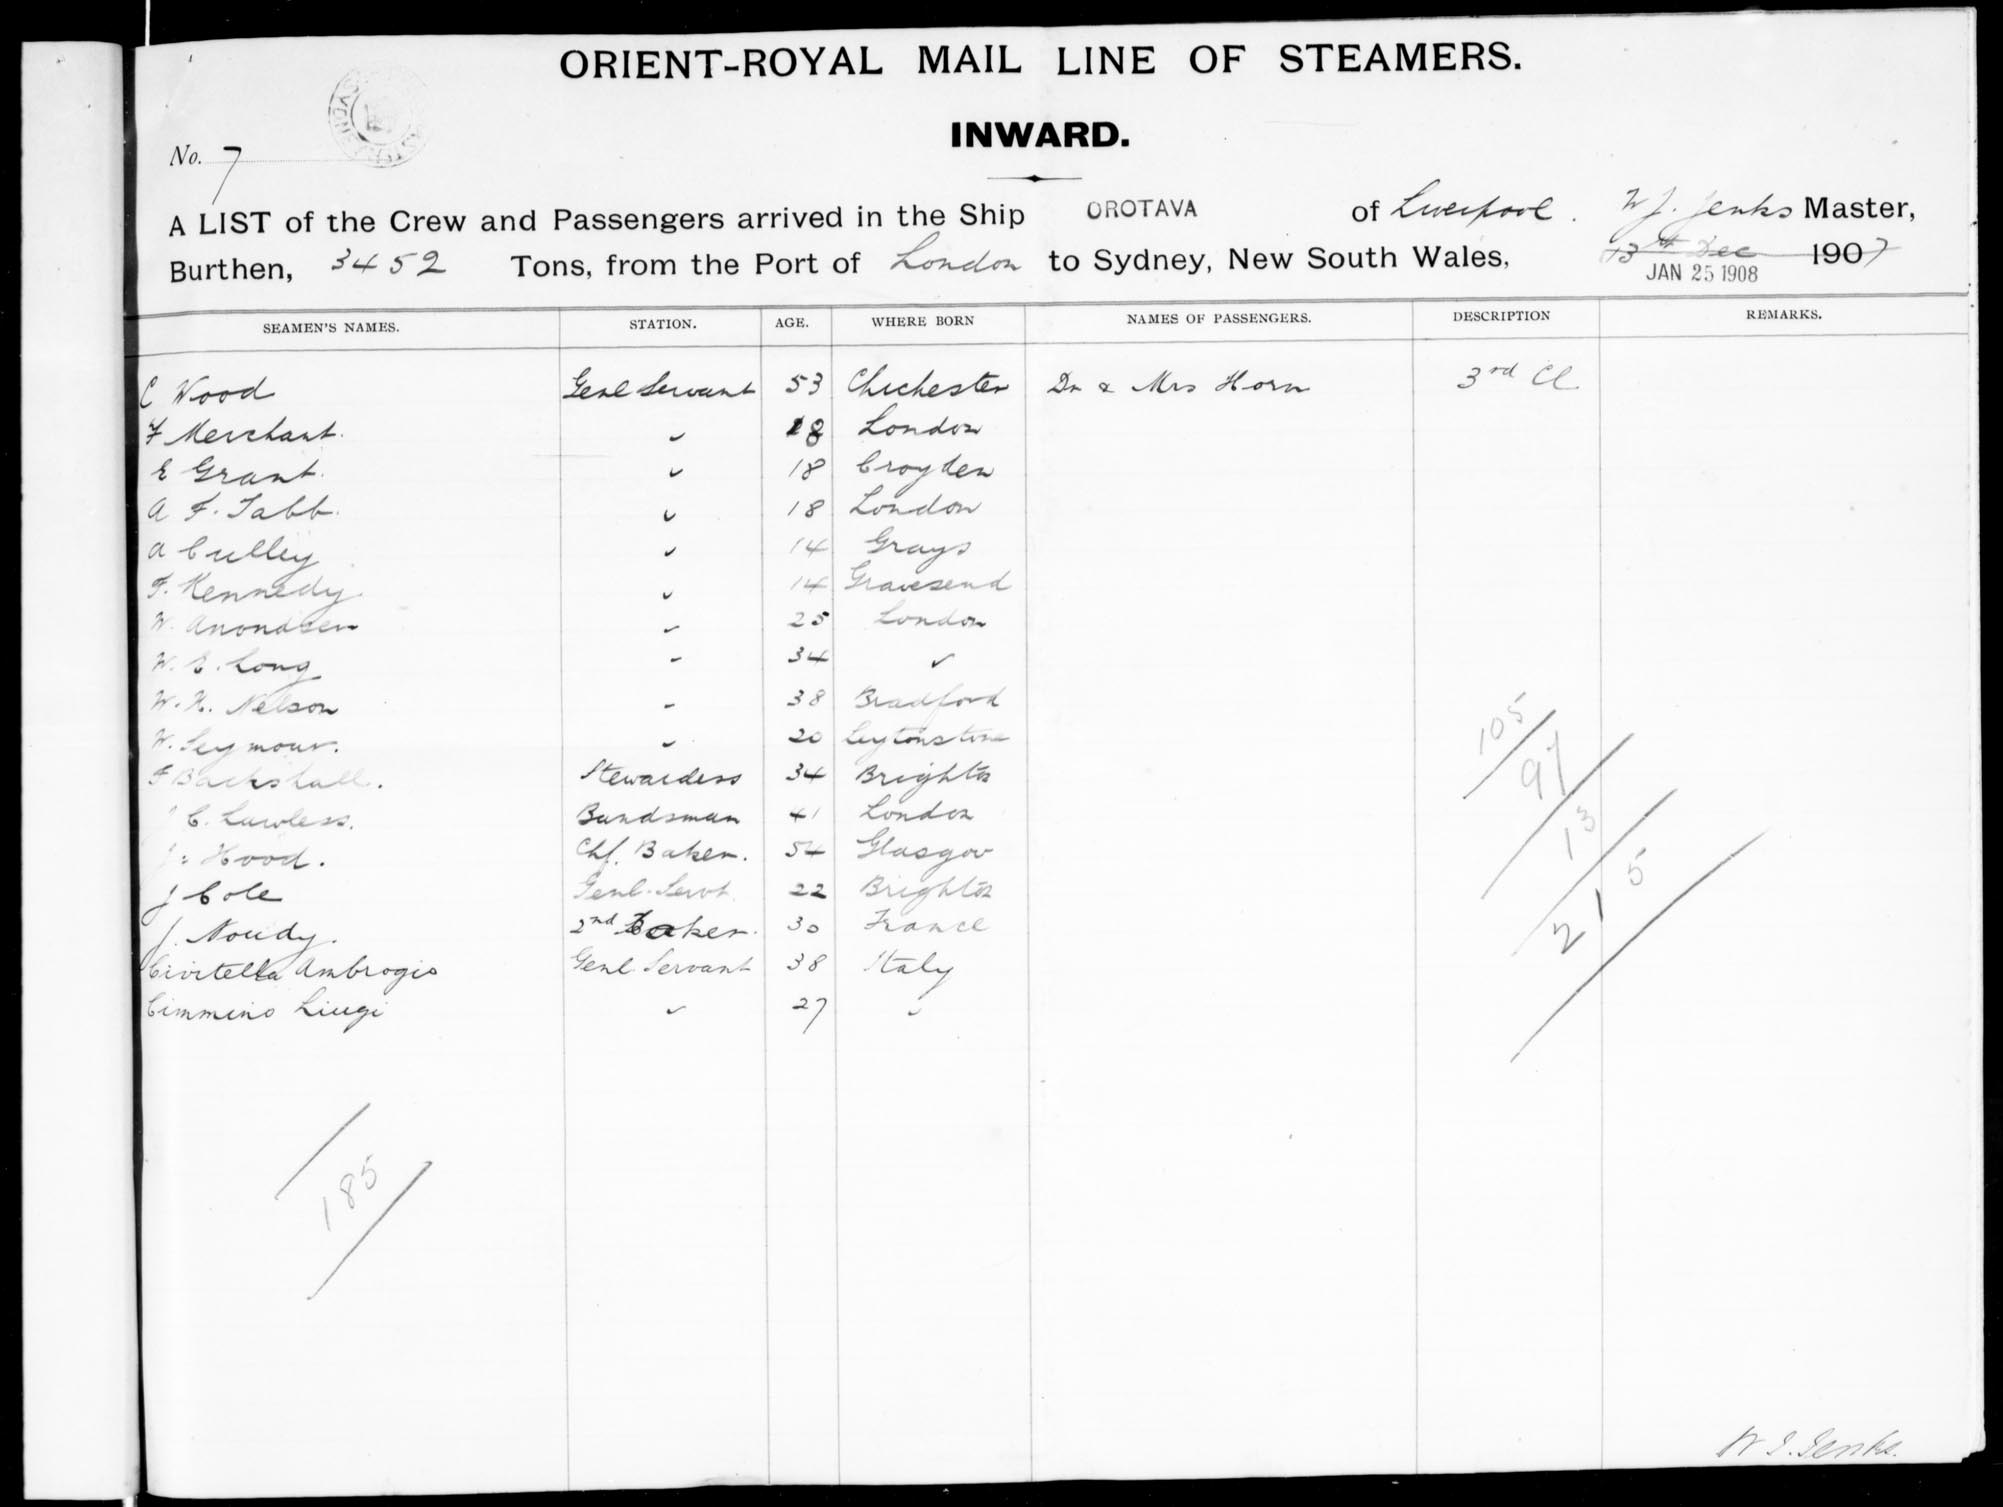 ORIENT-ROYAL MAIL LINE OF STEAMERS.
INWARD.
No. 7
SYDNEY
A LIST of the Crew and Passengers arrived in the Ship OROTAVA of Liverpool. W J. Jenks Master,
Burthen, 3452 Tons, from the Port of London to Sydney, New South Wales, 13th Dec 1907
JAN 25 1908
SEAMEN'S NAMES. STATION. AGE. WHERE BORN NAMES OF PASSENGERS. DESCRIPTION REMARKS.
C Wood Genl Servant 53 Chichester Dr & Mrs Horn 3rd Cl
F Merchant. " 18 London
E Grant. " 18 Croyden
A F. Tabb. " 18 London
A Culley " 14 Grays
F. Kennedy. " 14 Gravesend
W. Anondsen " 25 London
W. E. Long " 34 "
W. H. Nelson " 38 Bradford
W. Seymour. " 20 Leytonstone
F Backshall. Stewardess 34 Brighton
J C. Lawless. Bandsman 41 London
J. Hood. Chf. Baker. 54 Glasgow
J Cole Genl. Servt. 22 Brighton
J. Noudy. 2nd Baker. 30 France
Civitella Ambrogio Genl Servant 38 Italy
Cimmino Liugi " 27 "
105
97
13
215
185
W. J. Jenks.